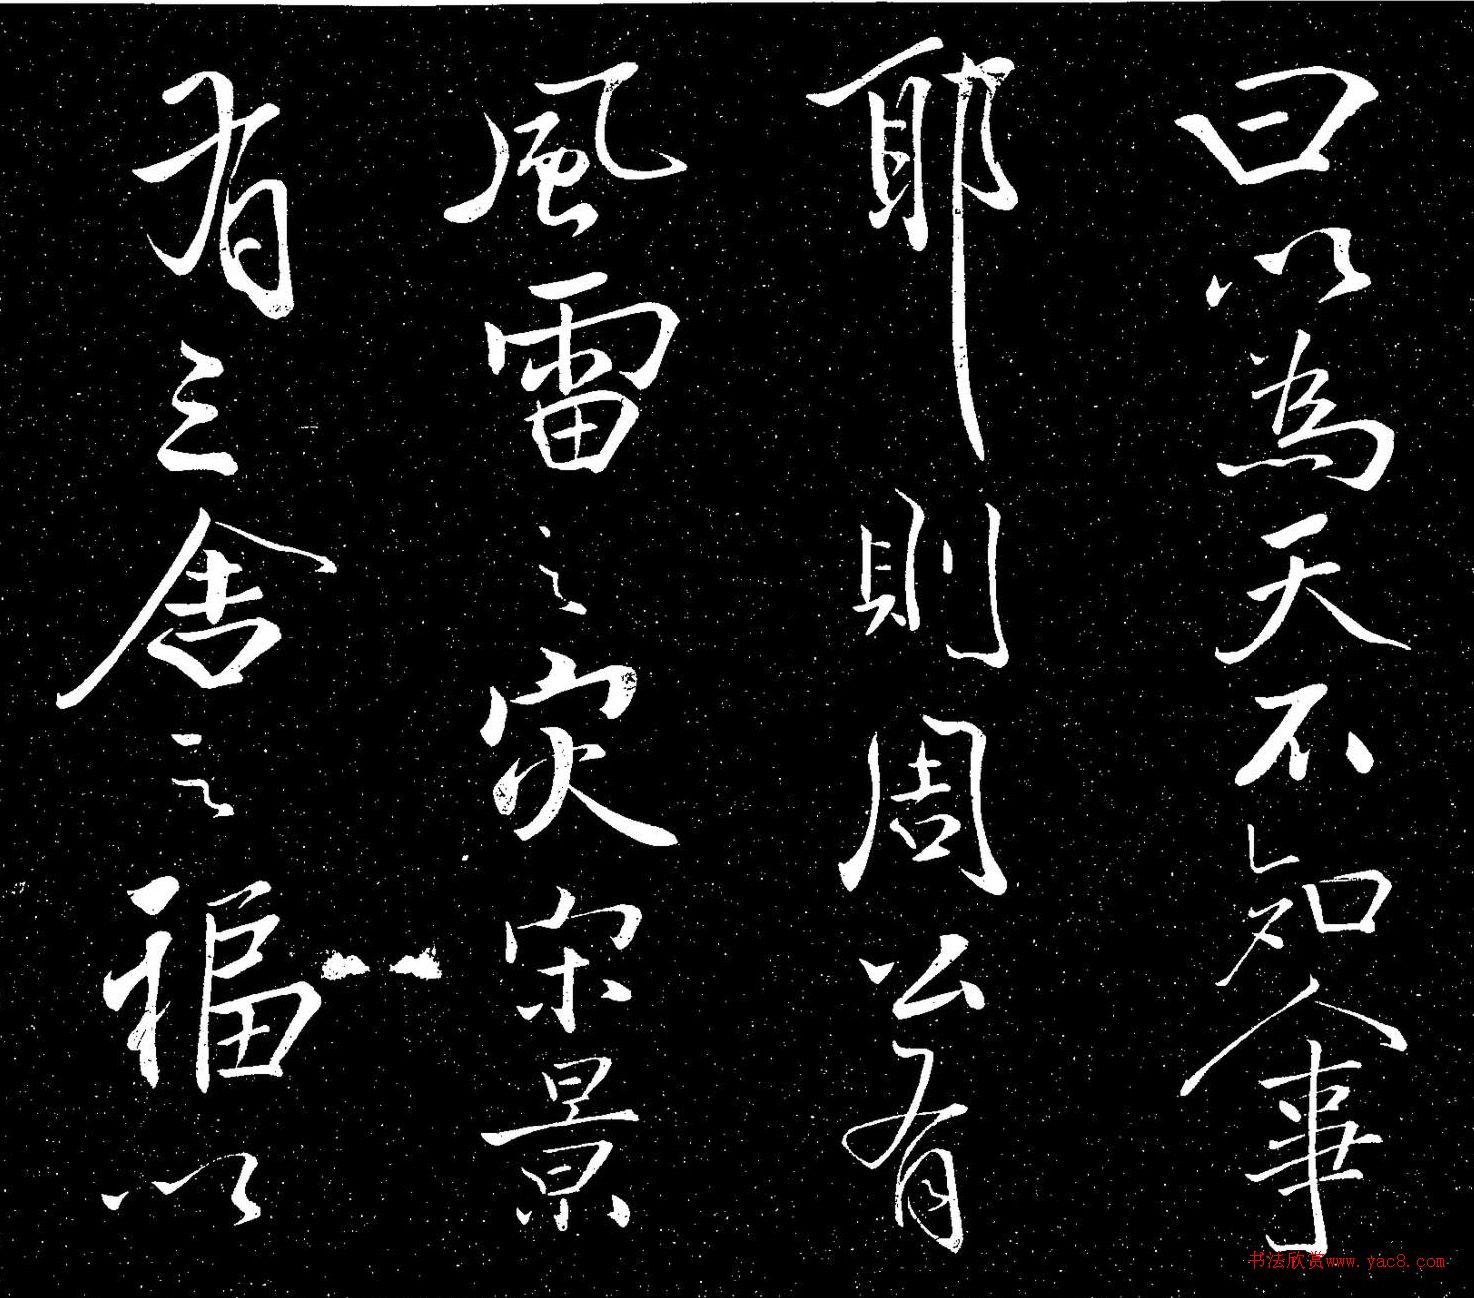 曰以為天不知人事
耶則周公有
風雷之灾宋景
有三舍之福以
书法欣赏www.yac8.com